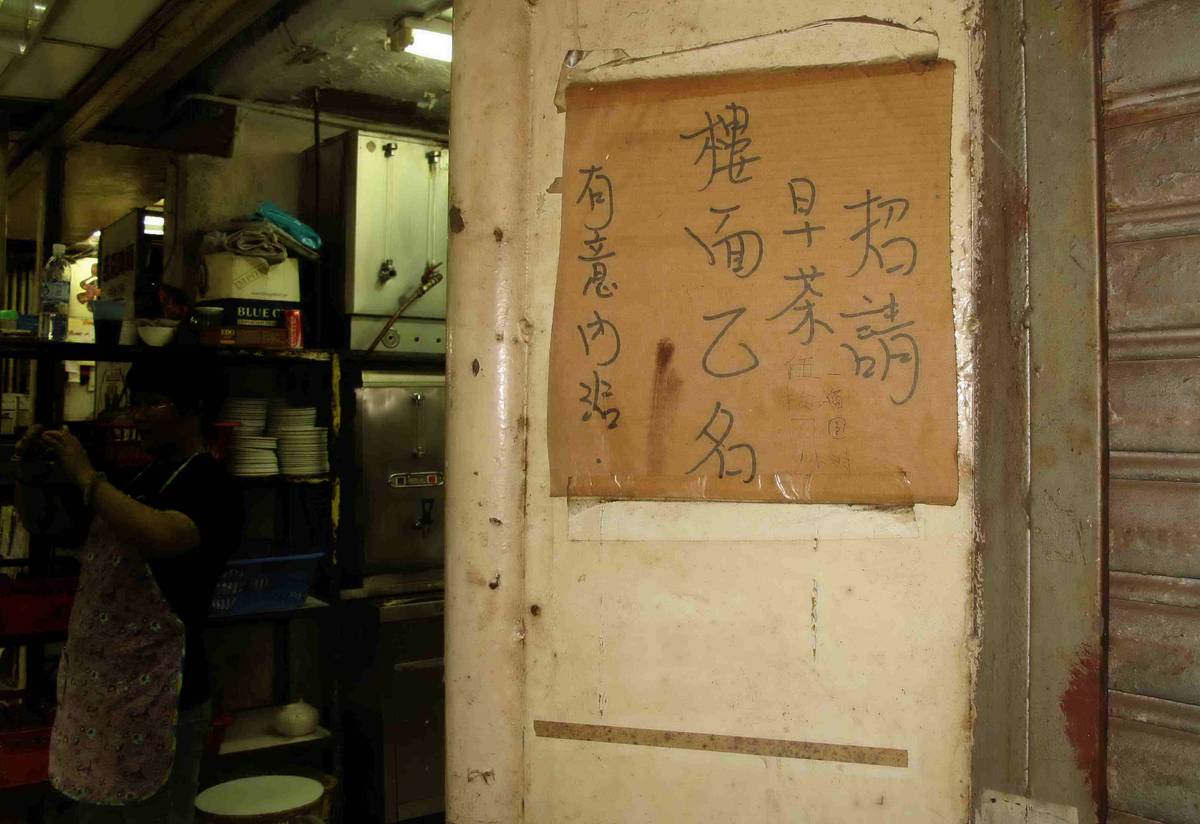 招請
早茶
樓面乙名
有意內洽.
BLUE